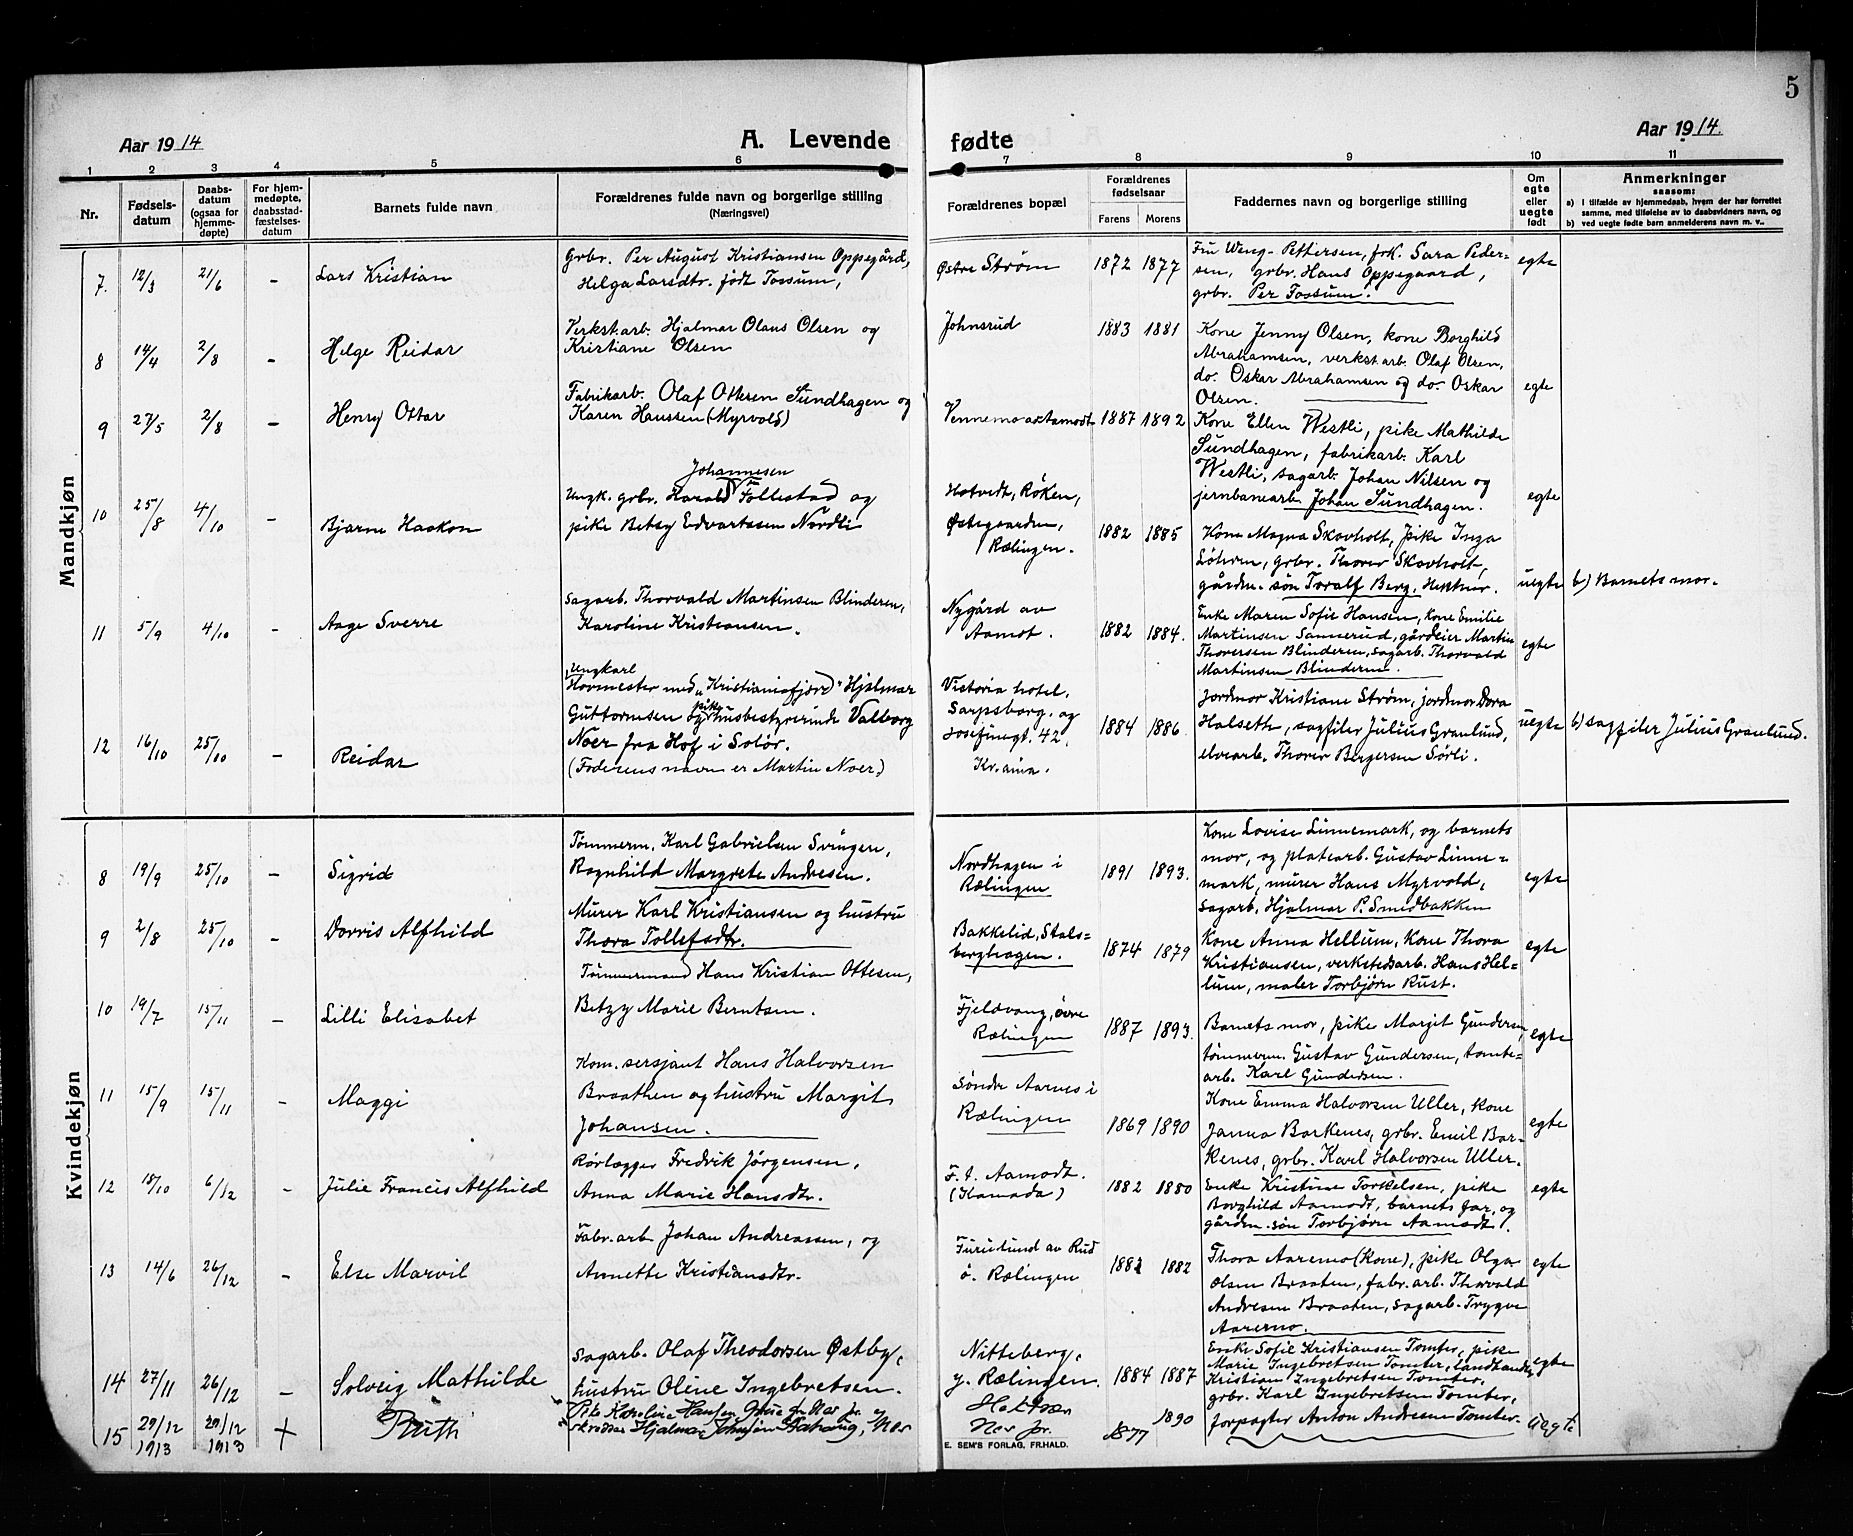 5
Aar 1914
A. Levende fødte
Aar 1914.
1 2 3 4 5 6 7 8 9 10 11
Nr.
Fødselsdatum
Daabsdatum (ogsaa for hjemmedøpte)
For hjemmedøpte, daabsstadfæstelsesdatum
Barnets fulde navn
Forældrenes fulde navn og borgerlige stilling
(Næringsvei)
Forældrenes bopæl
Forældrenes fødselsaar
Farens Morens
Faddernes navn og borgerlige stilling
Om egte eller uegte født
Anmerkninger
saasom:
a) I tilfælde av hjemmedaab, hvem der har forrettet
samme, med tilføielse av to daabsvidners navn, og
b) ved uegte fødte barn anmelderens navn m. v..
Mandkjøn
7. 12/3 21/6 - Lars Kristian
Grbr. Per August Kristiansen Oppegård,
Helga Larsdtr. født Tossum,
Østre Strøm 1872 1877
Fru Weng-Pettersen, frk. Sara Peder-
sen, grbr. Hans Oppegaard,
grbr. Per Tossum.
egte
8 14/4 2/8 - Helge Reidar
Verkst.arb. Hjalmar Olaus Olsen og
Kristiane Olsen
Johnsrud 1883 1881
Kone Jenny Olsen, kone Borghild
Abrahamsen, verkst.arb. Olaf Olsen,
do. Oskar Abrahamsen og do. Oskar
Olsen.
egte
9 27/5 2/8 - Henry Ottar
Fabrikarb. Olaf Ottesen Sundhagen og
Karen Hanssen (Myrvold)
Vennemo av Aamodt 1887 1892
Kone Ellen Westli, pike Mathilde
Sundhagen, fabrikarb. Karl
Westli, sagarb. Johan Nilsen og
jernbanearb. Johan Sundhagen.
egte
10 25/8 4/10 - Bjarne Haakon
Johannesen
Ungk. grbr. Harald Follestad og
pike Betsy Edvartsen Nordli
Hotvedt, Røken,
Østegaarden,
Rælingen.
1882 1885
Kone Magna Skovholt, pike Inga
Løhren, grbr. Thorer Skovholt,
gårdm. søn Toralf Berg, Hektner.
uegte b) Barnets mor.
11 5/9 4/10 - Aage Sverre
Sagarb. Thorvald Martinsen Blinderen,
Karoline Kristiansen.
Nygård av
Aamot.
1882 1884.
Enke Maren Sofie Hansen, kone Emilie
Martinsen Sannerud, gårdeier Martin
Thoresen Blinderen, sagarb. Thorvald
Martinsen Blinderen.
egte
12 16/10 25/10 - Reidar
Ungkarl
Hovmester med "Kristianiafjord" Hjalmar
Guttormsen og pike husbestyrerinde Valborg
Noer fra Hof i Solør.
(Faderens navn er Martin Noer.)
Victoria hotel,
Sarpsborg, og
Josefinegt. 42,
Kr.ania.
1884 1886.
Jordmor Kristiane Strøm, jordmor Dora
Halseth, sagfiler Julius Granlund,
elvearb. Thorer Bergersen Sørli.
uegte b) sagfiler Julius Granlund.
Kvindekjøn
8 19/9 25/10 - Sigrid
Tømmerm. Karl Gabrielsen Svingen,
Ragnhild Margrete Andresen.
Nordhagen i
Rælingen
1891 1893.
Kone Lovise Linnemark, og barnets
mor, og platearb. Gustav Linne-
mark, murer Hans Myrvold,
sagarb. Hjalmar P. Smedbakken
egte
9 2/8 25/10 - Dorris Alfhild
Murer Karl Kristiansen og hustru
Thora Tollefsdtr.
Bakkelid, Stals-
berghagen.
1874 1879
Kone Anna Hellum, kone Thora
Kristiansen, verkstedsarb. Hans Hel-
lum, maler Torbjørn Rust.
egte
10 19/7 15/11 - Lilli Elisabet
Tømmermand Hans Kristian Ottesen,
Betzy Marie Berntsen.
Fjeldvang, øvre
Rælingen
1887 1893.
Barnets mor, pike Margit Gundersen,
tømmerm. Gustav Gundersen, tomte-
arb. Karl Gundersen.
egte
11 15/9 15/11 - Maggi
Kom. sersjant Hans Halvorsen
Braathen og hustru Margit
Johansen.
Søndre Aarnes i
Rælingen
1869 1890
Kone Emma Halvorsen Uller, kone
Janna Barkenes, grbr. Emil Bar-
kenes, grbr. Karl Halvorsen Uller.
egte
12 18/10 6/12 - Julie Francis Alfhild
Rørlægger Fredrik Jørgensen,
Anna Marie Hansdtr.
F. t. Aamodt.
(Kanada)
1882 1880
Enke Kristine Torkelsen, pike
Borghild Aamodt, barnets far, og
gårdm. søn Torbjørn Aamodt.
egte
13 14/6 26/12 - Else Marvil
Fabr.arb. Johan Andreassen, og
Annette Kristiansdtr.
Furulund av Rud
ø. Rælingen
1882
Thora Aaremo (kone), pike Olga
Olsen Braaten, fabr.arb. Thorvald
Andresen Braaten, sagarb. Trygve
Aaremo.
egte
14 27/11 26/12 - Solveig Mathilde
Sagarb. Olaf Theodorsen Østby,
hustru Oline Ingebretsen.
Nitteberg,
y. Rælingen.
1884 1887
Enke Sofie Kristiansen Tomter, pike
Marie Ingebretsen Tomter, landhandler
Kristian Ingebretsen Tomter,
grbr. Karl Ingebretsen Tomter,
forpagter Anton Andresen Tomter.
egte
15 29/12 1913 29/12 1913 + Ruth
Pike Karoline Hansen
skrædder Hjalmar Johnsen
Nes pr.
1877 1890
uegte
E. SEM'S FORLAG, FR.HALD.